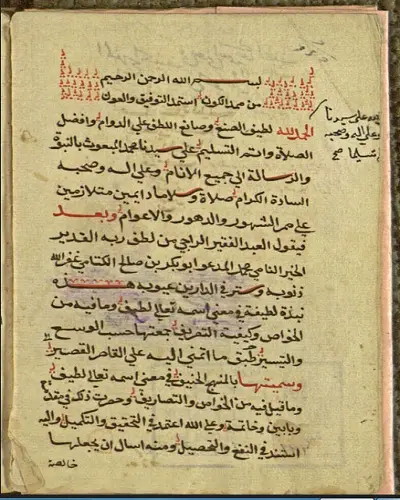 بسم الله الرحمن الرحيم
من ممد الكون استمد التوفيق والعون
الحمد لله لطيف الصنع وصانع اللطف على الدوام وافضل
الصلاة واتم التسليم على سيدنا محمد المبعوث بالنبوة
والرسالة الى جميع الانام وعلى اله وصحبه
السادة الكرام صلاة وسلاما دايمين متلازمين
على ممر الشهور والدهور والاعوام وبعد
فيقول العبد الفقير الراجي من لطف ربه القدير
محمد المدعو ابو بكر بن صالح الكتامي غفر الله
ذنوبه وستر في الدارين عيوبه هذه
نبذة لطيفة في معنى اسمه تعالى لطيف وما فيه من
الخواص وكيفية التصريف جمعتها حسب الوسع
والتيسير طبق ما انتهى اليه علم القاصر القصير
وسميتها بالمنهج الحنيف في معنى اسمه تعالى لطيف
وما قيل فيه من الخواص والتصاريف وحررت ذلك في مقدمة
وبابين وخاتمة وعلى الله اعتمد في التحقيق والتكميل واليه
استند في النفع والتحصيل ومنه اسال ان يجعلها
خالصة
على سيدنا
وعلى اله وصحبه